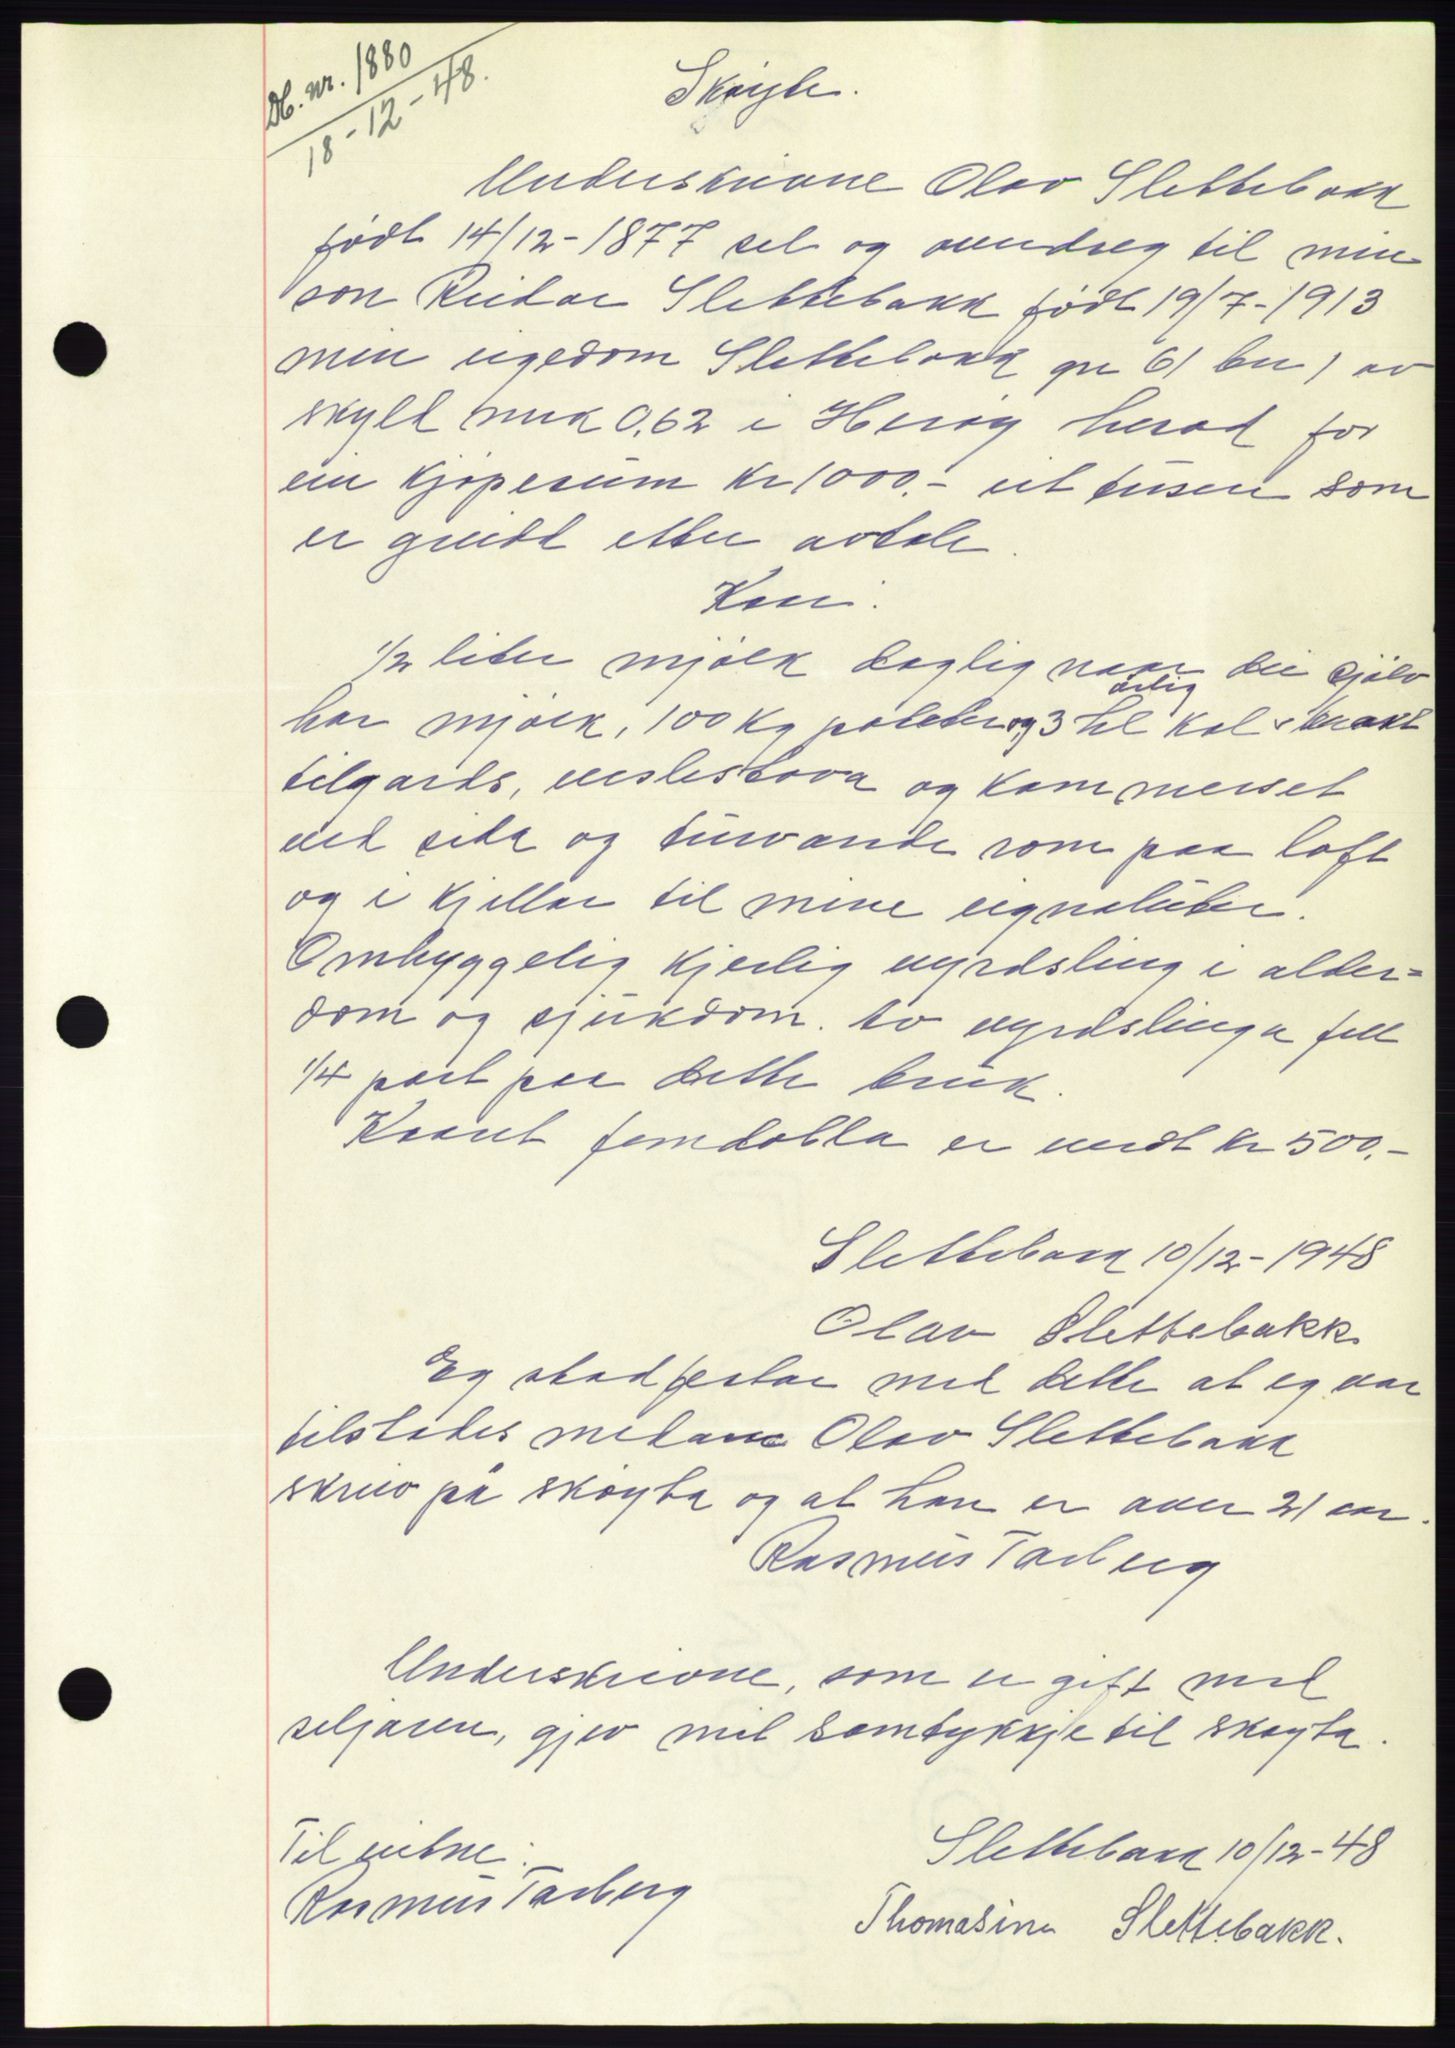 Db. nr. 1880
18-12-48.
Skøyte.
Underskrivne Olav Slettebakk
født 14/12-1877 sel og avendreg til min
son Reidar Slettebakk født 19/7-1913
min eigedom Slettebakk gnr 61 bnr 1 av
skyld mrk 0,62 i Herøy herad for
ein kjøpesum kr 1000.- eit tusen som
er greidt etter avtale.
Kaar:
1/2 liter mjølk dagleg naar dei sjølv
har mjølk, 100 kg poteter og 3 hl kol årlig brakt
tilgards, veslestova og kammerset
ved sida og turvande rom paa loft
og i kjellar til mine eignaluter.
Omhyggelig kjerlig vyrdsling i alder=
dom og sjukdom. Av vyrdslinga fell
1/4 part paa dette bruk.
Kaaret femdobla er verdt kr 500.-
Slettebakk 10/12-1948
Olav Slettebakk
Eg stadfestar med dette at eg var
tilstades medan Olav Slettebakk
skreiv på skøyta og at han er over 21 aar.
Rasmus Tarberg
Underskrivne, som er gift med
seljaren, gjev mit samtykkje til skøyta.
Til vitne:
Rasmus Tarberg
Slettebakk 10/12-48
Thomasine Slettebakk.